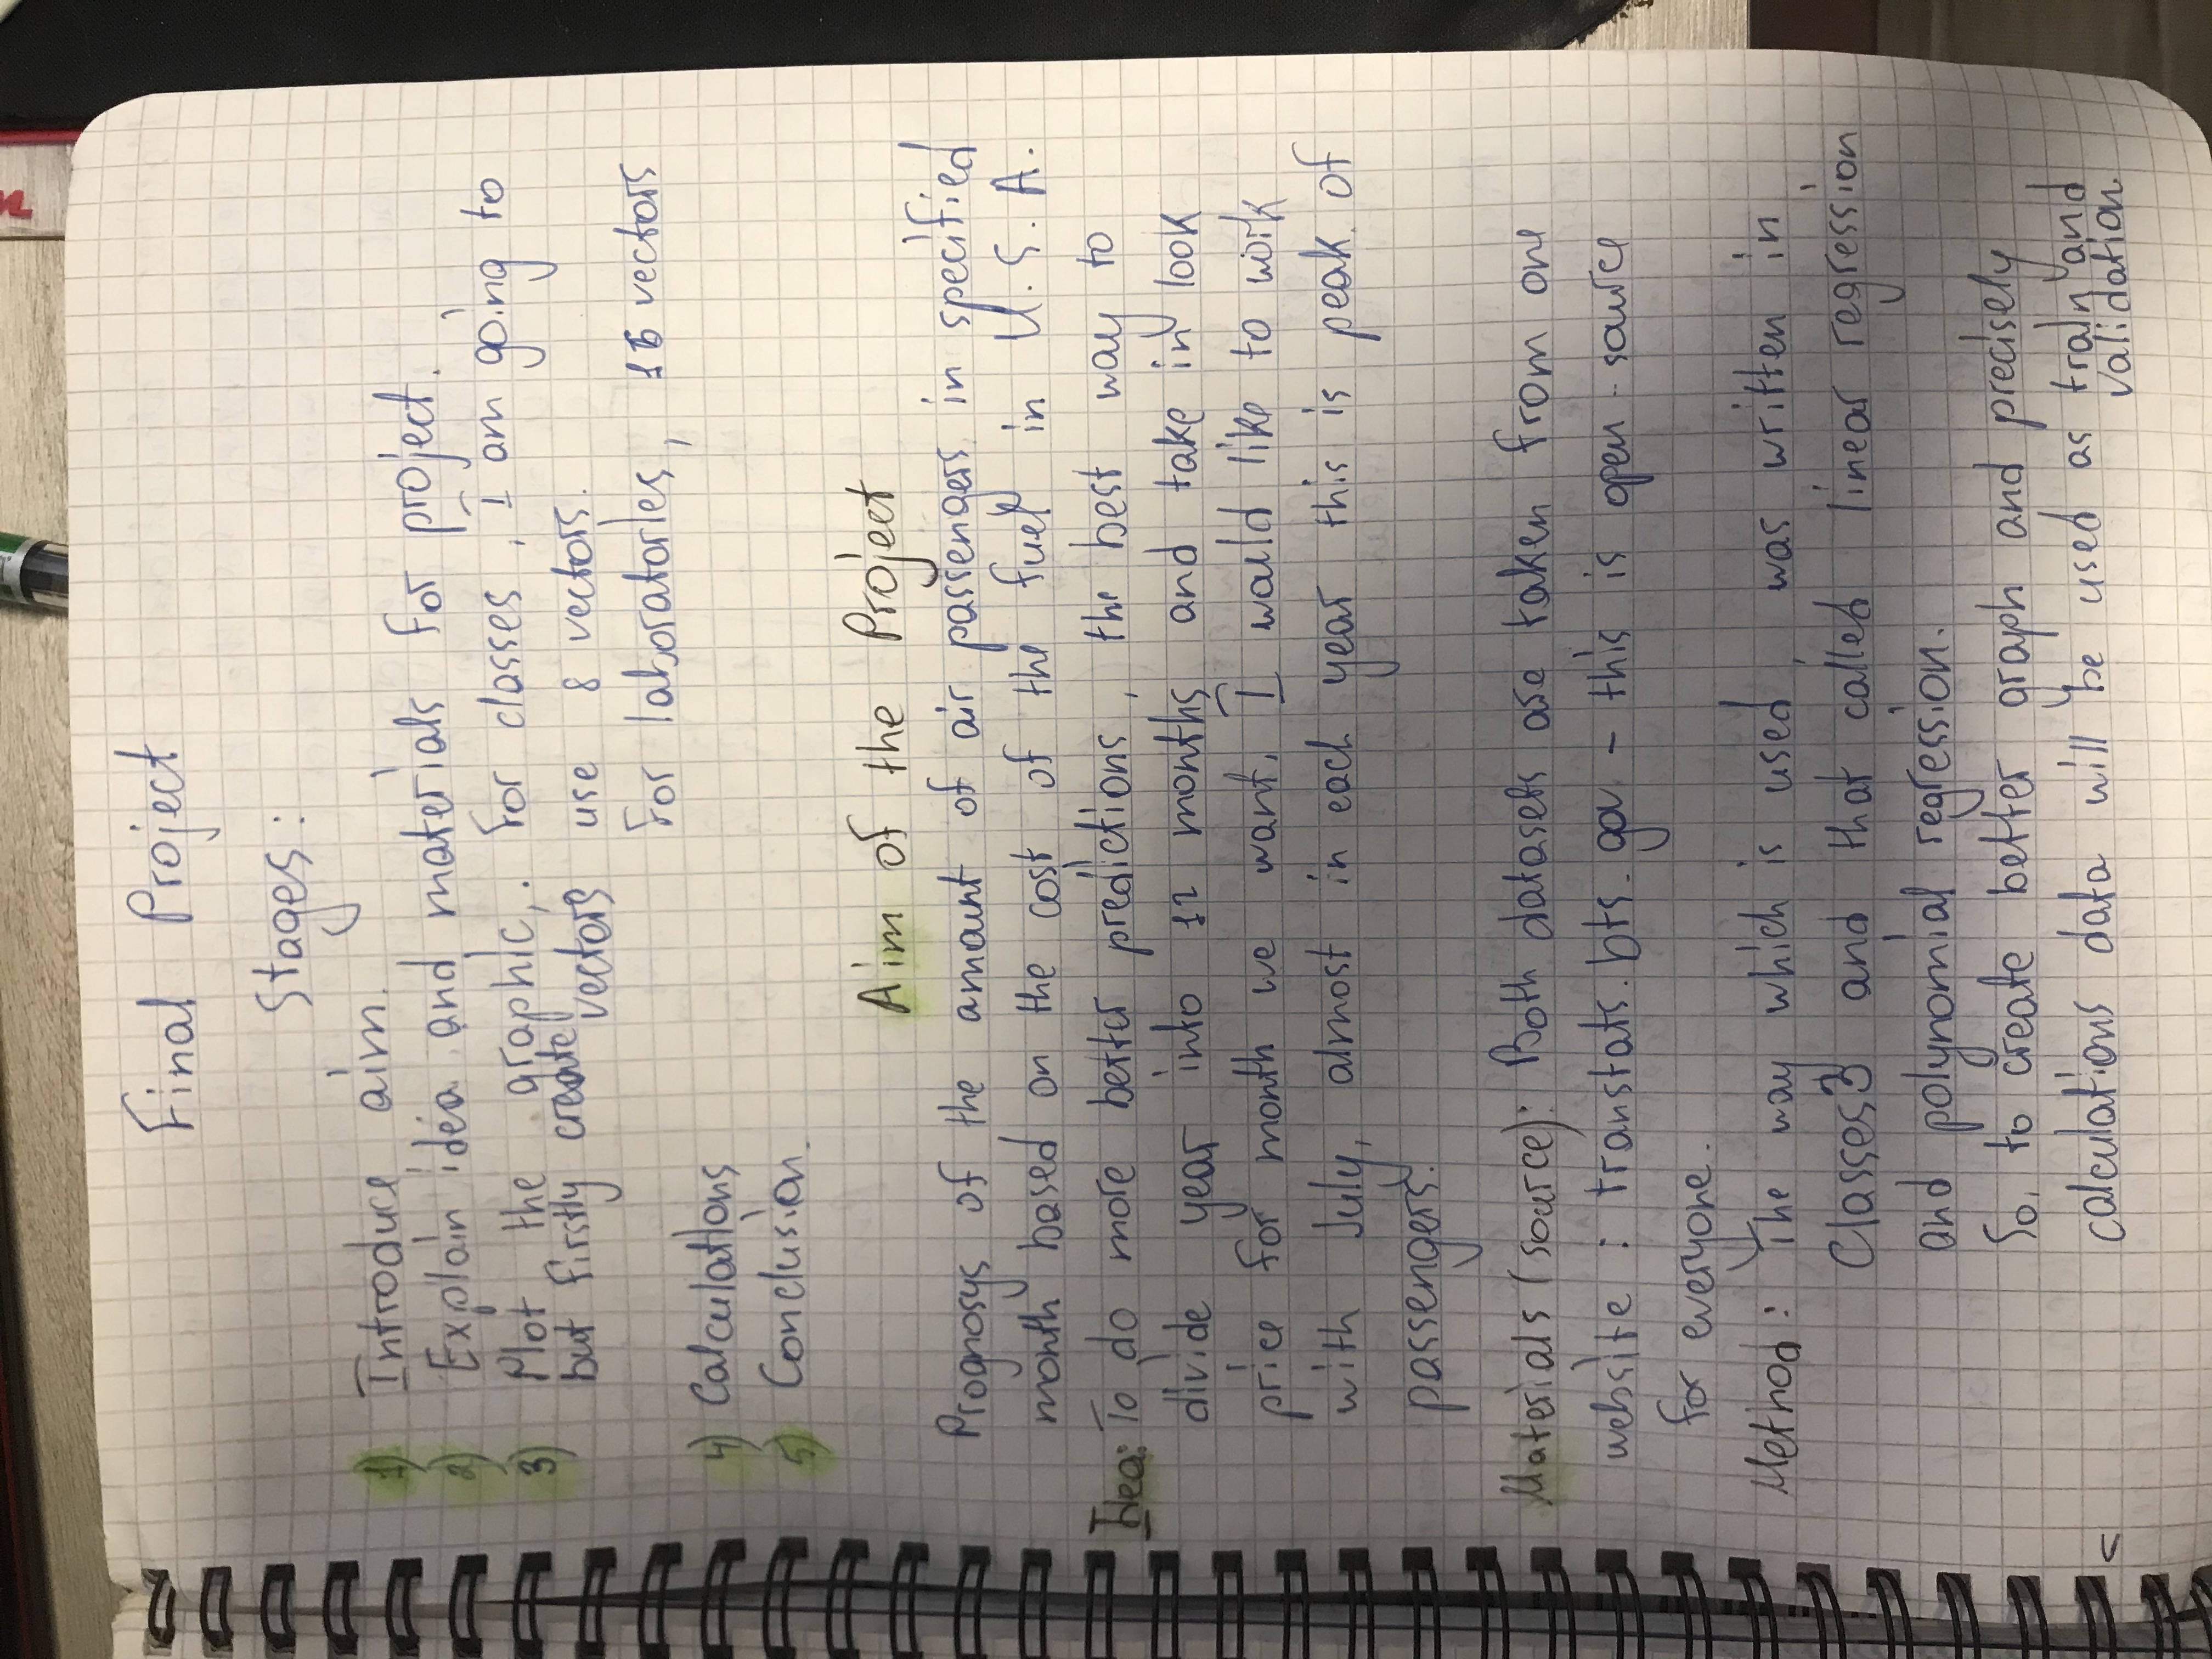 Final Project
Stages:
1) Introduce aim.
2) Explain idea and materials for project.
3) Plot the graphic,. For classes, I am going to
but firstly create vectors use 8 vectors.
For laboratories, 16 vectors
4) Calculations
5) Conclusion.
Aim of the Project
Prognosys of the amount of air passengers in specified
month based on the cost of the fuel in U.S.A.
Idea: To do more better predictions, the best way to
divide year into 12 months and take in look
price for month we want. I would like to work
with July, almost in each year this is peak of
passengers.
Materials (source): Both datasets are taken from one
website : transtats.bts.gov - this is open-source
for everyone.
Method: The way which is used, was written in
Classes3 and that called linear regression
and polynomial regression.
So, to create better graph and precisely
calculations data will be used as train and
validation.